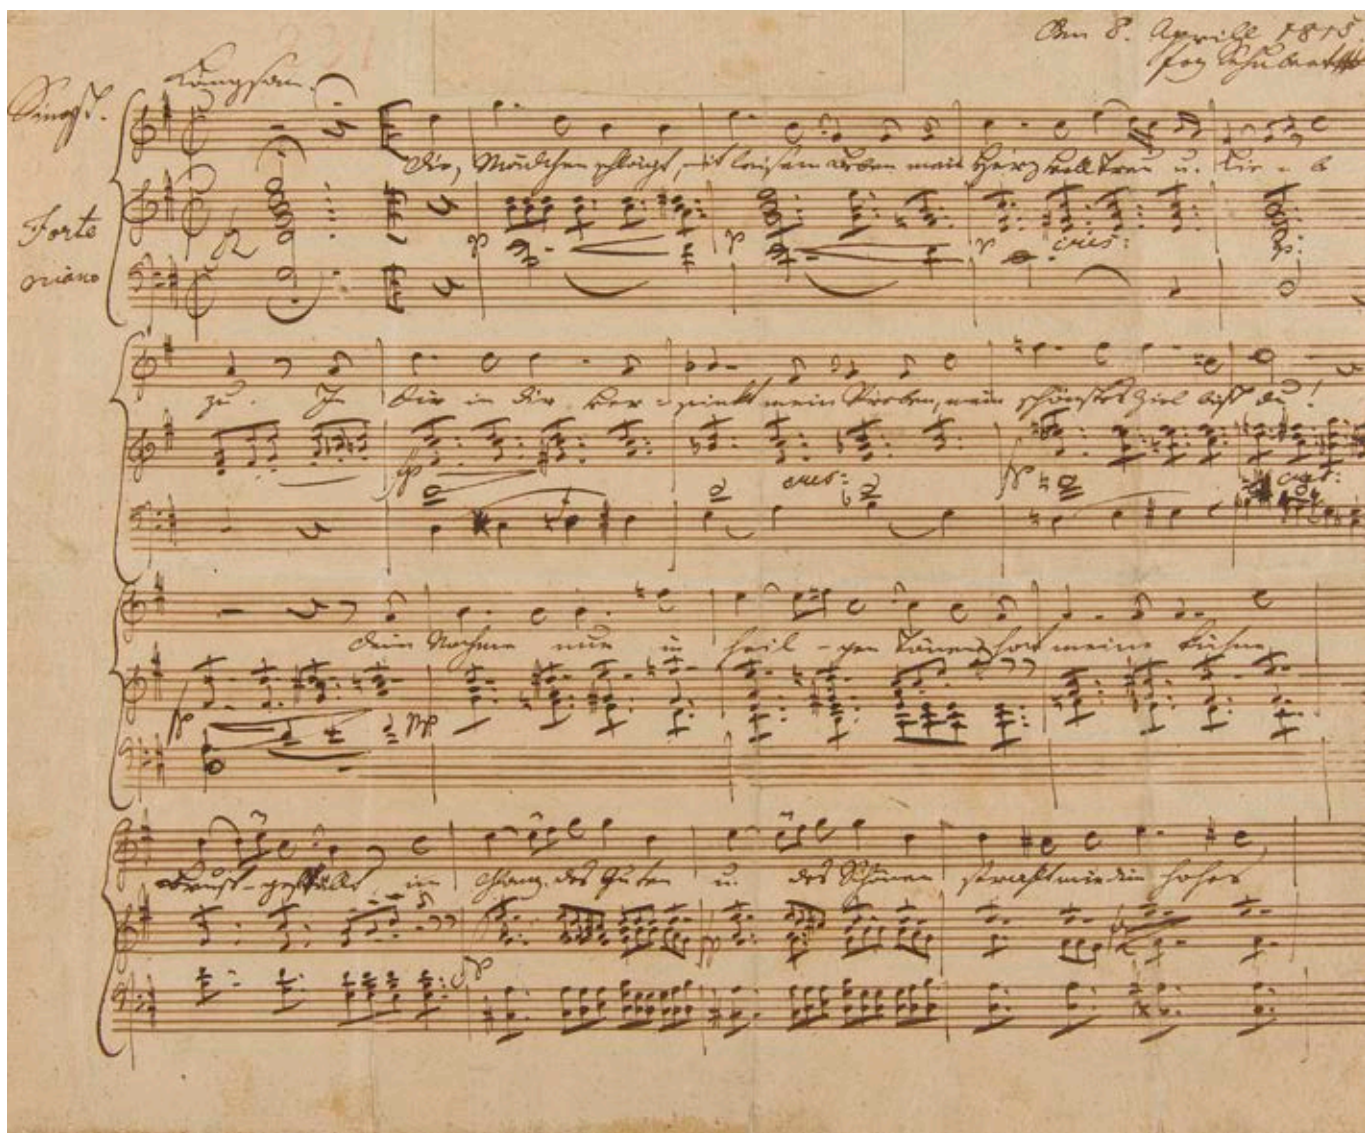 Den 8. Aprill 1815
Frz Schubert
Langsam.
Singst.
Dir, Mädchen schlägt, mit leisem Beben mein Herz voll Treu u. Lie - b
Forte
p p p cres: p:
piano
zu. In dir in dir ver - sinkt mein Streben, mein schönstes Ziel bist du!
fp cres: fp cres:
Dein Nahme nur in heil - gen Tönen hat meine kühne
fp pp
Brust gefüllt im Glanz des Guten u. des Schönen strahlt mir dein hohes
p